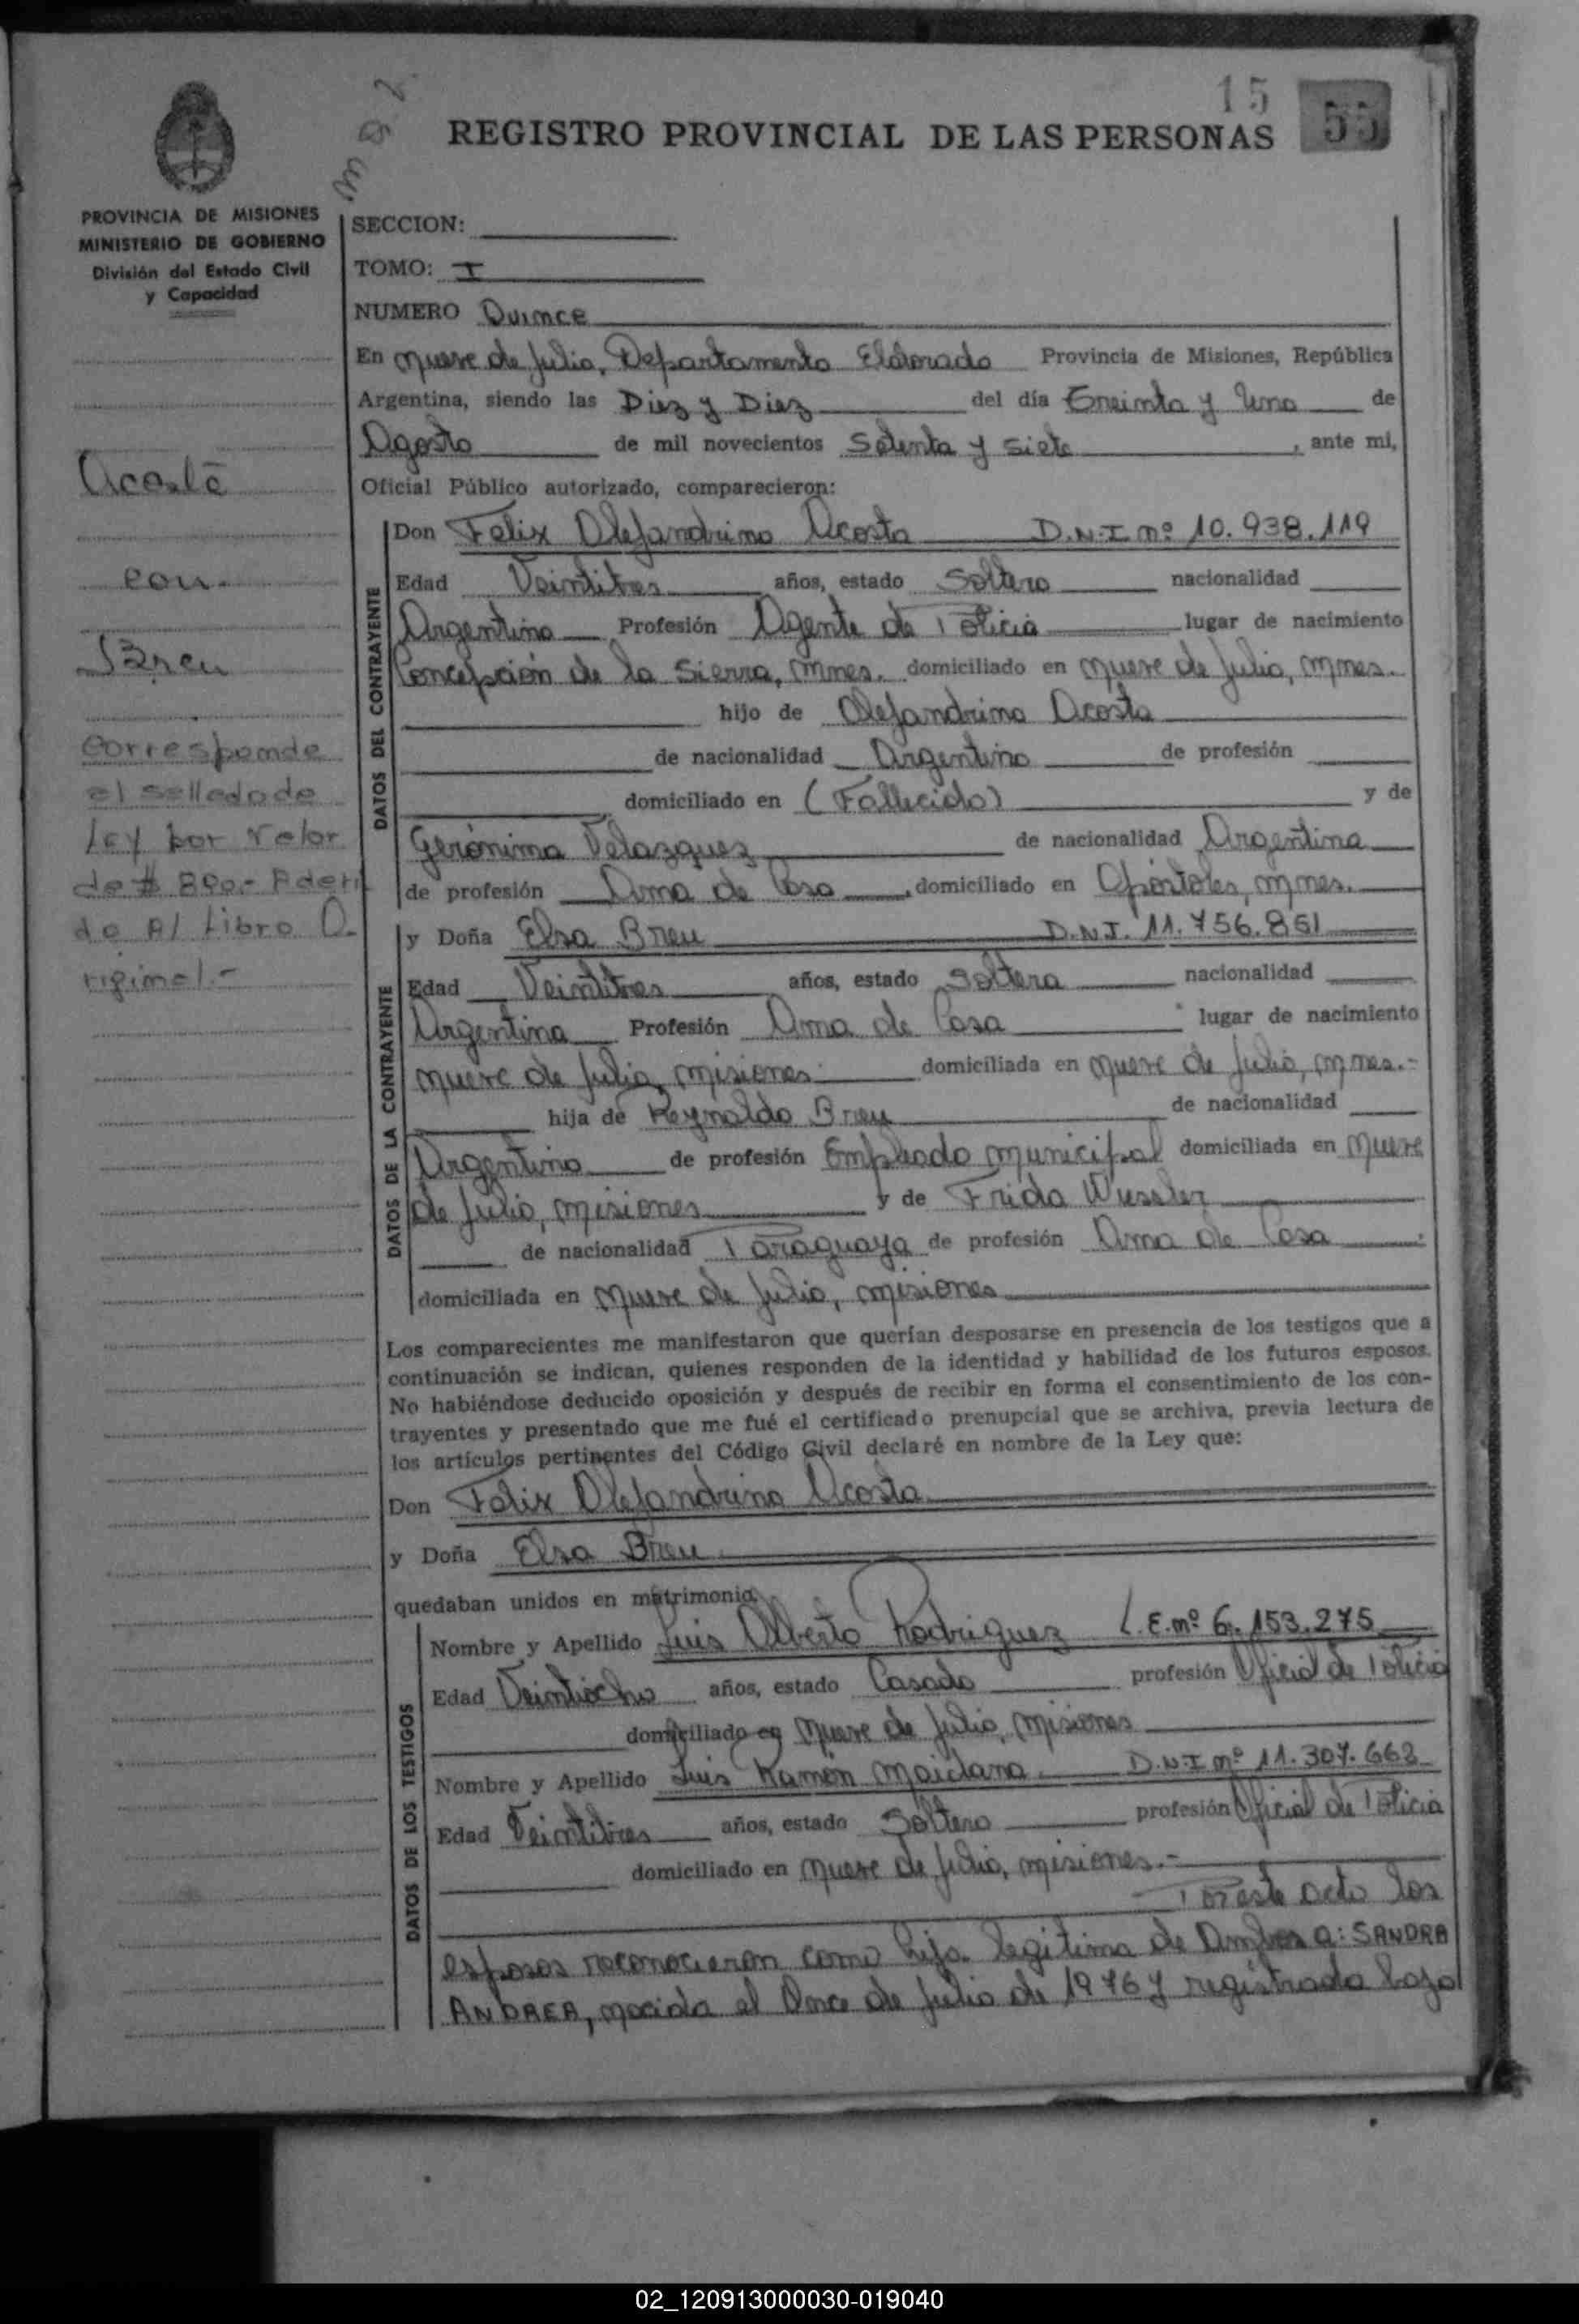 15 55
REGISTRO PROVINCIAL DE LAS PERSONAS
PROVINCIA DE MISIONES
MINISTERIO DE GOBIERNO
División del Estado Civil
y Capacidad
Acosta
con
Breu
Corresponde
el sellado de
Ley por valor
de $ 800.- Aderi
do Al Libro O-
riginal.-
SECCION:
TOMO: I
NUMERO Quince
En Nueve de Julio, Departamento Eldorado Provincia de Misiones, República
Argentina, siendo las Diez y Diez del día Treinta y Uno de
Agosto de mil novecientos Setenta y siete, ante mi,
Oficial Público autorizado, comparecieron:
DATOS DEL CONTRAYENTE
Don Felix Alejandrino Acosta D.N.I. nº 10.938.119
Edad Veintitres años, estado Soltero nacionalidad
Argentino Profesión Agente de Policia lugar de nacimiento
Concepción de la Sierra, Mnes. domiciliado en Nueve de Julio, Mnes.
hijo de Alejandrino Acosta
de nacionalidad Argentino de profesión
domiciliado en (Fallecido) y de
Gerónima Velazquez de nacionalidad Argentina
de profesión Ama de Casa, domiciliado en Apóstoles, Mnes.
DATOS DE LA CONTRAYENTE
y Doña Elsa Breu D.N.I. 11.756.861
Edad Veintitres años, estado Soltera nacionalidad
Argentina Profesión Ama de Casa lugar de nacimiento
Nueve de Julio, Misiones domiciliada en Nueve de Julio, Mnes.-
hija de Reynaldo Breu de nacionalidad
Argentino de profesión Empleado Municipal domiciliada en Nueve
de Julio, Misiones y de Frida Wussler
de nacionalidad Paraguaya de profesión Ama de Casa
domiciliada en Nueve de Julio, Misiones
Los comparecientes me manifestaron que querían desposarse en presencia de los testigos que a
continuación se indican, quienes responden de la identidad y habilidad de los futuros esposos.
No habiéndose deducido oposición y después de recibir en forma el consentimiento de los con-
trayentes y presentado que me fué el certificado prenupcial que se archiva, previa lectura de
los artículos pertinentes del Código Civil declaré en nombre de la Ley que:
Don Felix Alejandrino Acosta
y Doña Elsa Breu
quedaban unidos en matrimonio
DATOS DE LOS TESTIGOS
Nombre y Apellido Luis Alberto Rodriguez L.E. nº 6.153.275
Edad Veintiocho años, estado Casado profesión Oficial de Policia
domiciliado en Nueve de Julio, Misiones
Nombre y Apellido Luis Ramón Maidana D.N.I nº 11.307.662
Edad Veintitres años, estado Soltero profesión Oficial de Policia
domiciliado en Nueve de Julio, Misiones.-
Por este acto los
esposos reconocieron como hija legitima de Ambos a: SANDRA
ANDREA, nacida el Once de Julio de 1976 y registrada bajo
02_120913000030-019040